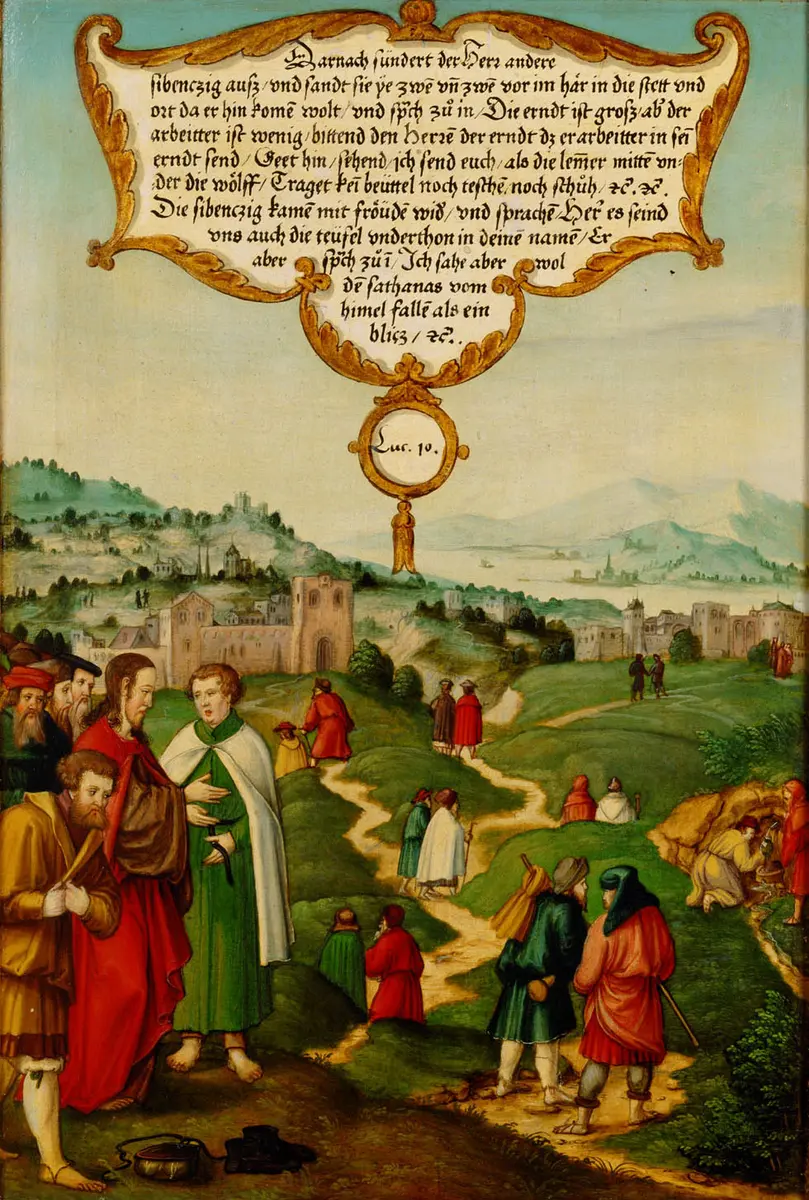 Darnach sündert der Herr andere
sibenczig ausz / vnd sandt sie ye zwē vñ zwē vor im hār in die stett vnd
ort da er hin komē wolt / vnd sp̄ch zů in / Die erndt ist grosz / ab᷒ der
arbeitter ist wenig / bittend den Herrē der erndt dz er arbeitter in sei᷒
erndt send / Geet hin / sehend / ich send euch / als die lem̄er mittē vn-
der die wölff / Traget kei᷒ beüttel noch teschē / noch schůh / ꝛc̄. ꝛc̄.
Die sibenczig kamē mit fröudē wid᷒ / vnd sprachē Her᷒ es seind
vns auch die teüfel vnderthon in deinē namē / Er
aber sp̄ch zů ī / Ich sahe aber wol
dē sathanas vom
himel fallē als ein
blicz / ꝛc̄..
Luc. 10.